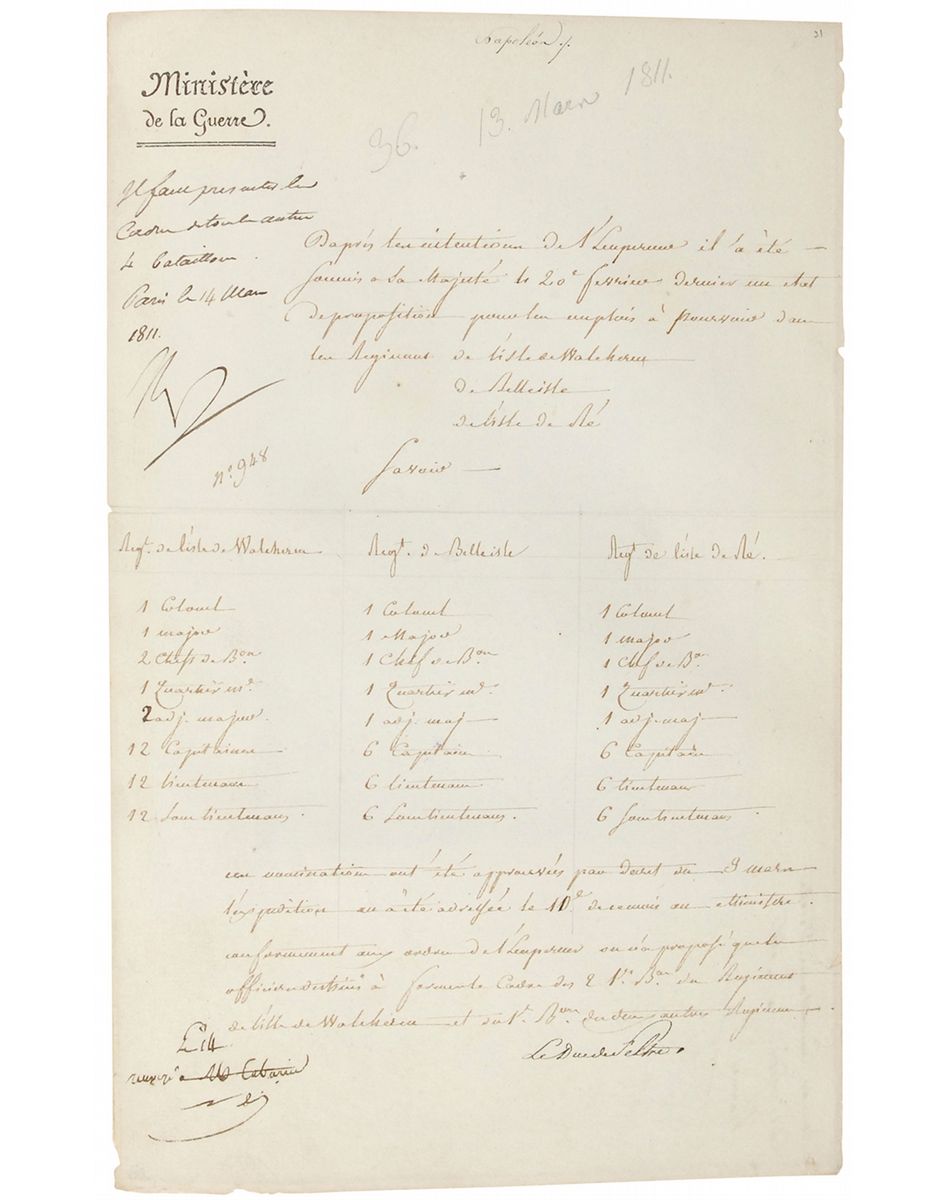 Napoléon
31
Ministère
de la Guerre.
36. 13. Mars 1811.
Il faut présenter les
Cadres de tous les autres
4 bataillons.
Paris le 14 Mars
1811.
N
n.º 948
D'après les intentions de l'Empereur il a été
soumis à Sa Majesté le 20 février dernier un état
de proposition pour les emplois à pourvoir dans
les Régimens de l'isle de Walcheren
de Belleisle
de l'isle de Ré
Savoir
Regt. de l'isle de Walcheren Regt. de Belleisle Regt de l'isle de Ré.
1 Colonel 1 Colonel 1 Colonel
1 major 1 Major 1 major
2 Chefs de Bon 1 Chef de Bon 1 Chef de Bon
1 Quartier me. 1 Quartier me. 1 Quartier me.
2 adj. major. 1 adj. maj 1 adj. maj
12 Capitaines 6 Capitaines 6 Capitaines
12 lieutenans 6 lieutenans 6 lieutenans
12 Souslieutenans. 6 Souslieutenans. 6 souslieutenans
ces nominations ont été approuvées par décret du 9 mars
l'expédition en a été adressée le 10 de ce mois au Ministre.
conformément aux ordres de l'Empereur on n'a proposé que les
officiers destinés à former le Cadre des 2 1ers Bons du Régiment
de l'isle de Walcheren et du 1er Bon des deux autres Régimens.
Le Duc de Feltre.
14
renvoyé à